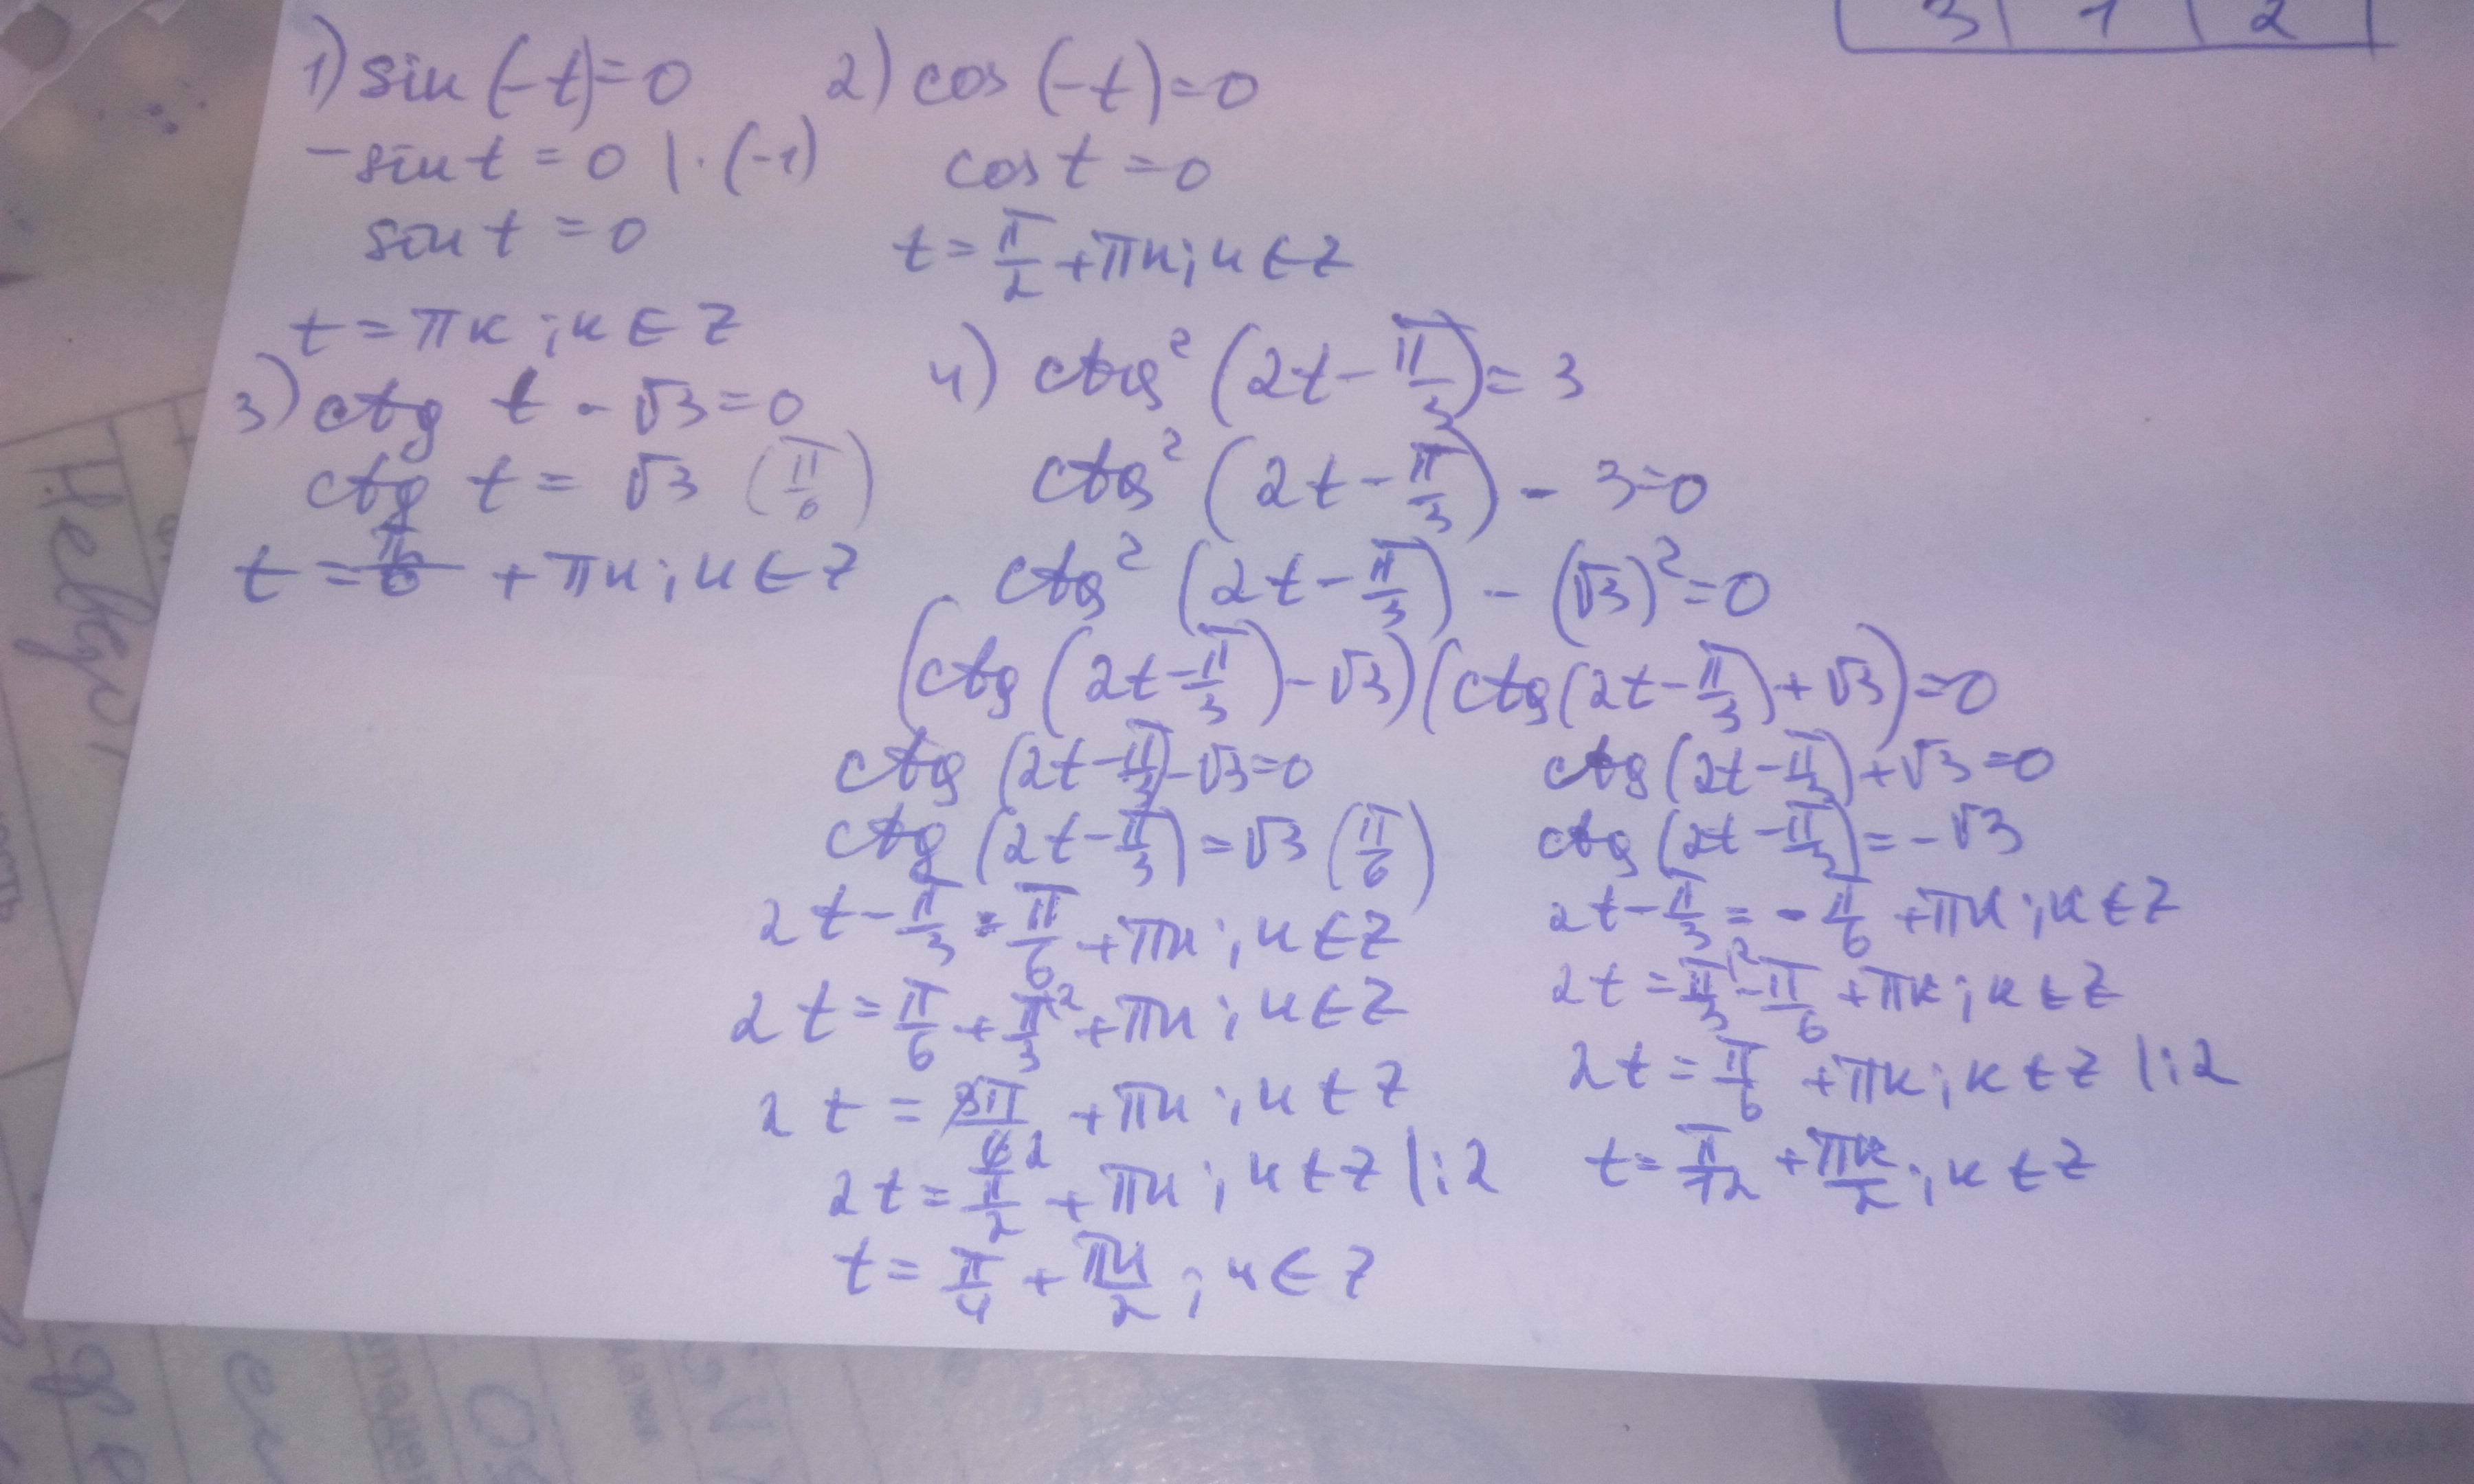 3 1 2
1) sin (-t)=0
-sin t = 0 |·(-1)
sin t = 0
t = πk ; k ∈ Z
2) cos (-t)=0
cos t = 0
t = π/2 + πk; k ∈ Z
3) ctg t - √3 = 0
ctg t = √3 (π/6)
t = π/6 + πk; k ∈ Z
4) ctg² (2t - π/3) = 3
ctg² (2t - π/3) - 3 = 0
ctg² (2t - π/3) - (√3)² = 0
(ctg (2t - π/3) - √3)(ctg (2t - π/3) + √3) = 0
ctg (2t - π/3) - √3 = 0
ctg (2t - π/3) = √3 (π/6)
2t - π/3 = π/6 + πk ; k ∈ Z
2t = π/6 + π/3 ^2 + πk ; k ∈ Z
2t = 3π/6 2 + πk ; k ∈ Z
2t = π/2 + πk ; k ∈ Z |:2
t = π/4 + πk/2 ; k ∈ Z
ctg (2t - π/3) + √3 = 0
ctg (2t - π/3) = -√3
2t - π/3 = - π/6 + πk ; k ∈ Z
2t = π/3 ^2 - π/6 + πk ; k ∈ Z
2t = π/6 + πk ; k ∈ Z |:2
t = π/12 + πk/2 ; k ∈ Z